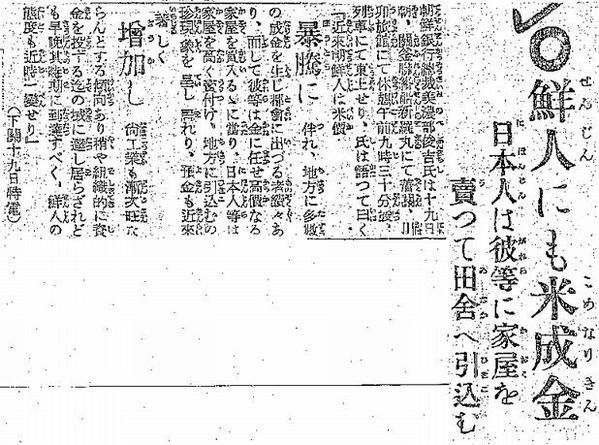 鮮人にも米成金
日本人は彼等に家屋を
賣つて田舎へ引込む
朝鮮銀行總裁美濃部俊吉氏は十九日
朝、關釜聯絡船新羅丸にて着關、川
卯旅館にて休憩午前九時三十分發
列車にて東上せり、氏は語つて曰く
「近來朝鮮人は米價
暴騰に 伴れ、地方に多數
の成金を生じ都會に出づる者續々あ
り、而して彼等は金に任せ高價なる
家屋を買入るゝに當り、日本人等は
家屋を高く賣付け、地方に引込むの
珍現象を呈し居れり、預金も近來
著しく
増加し 商工業も漸次旺な
らんとする傾向あり稍や組織的に資
金を投ずる迄の域に達し居らざれど
も早晩其時期に到達すべく、鮮人の
態度も近時一變せり」
（下關十九日特電）